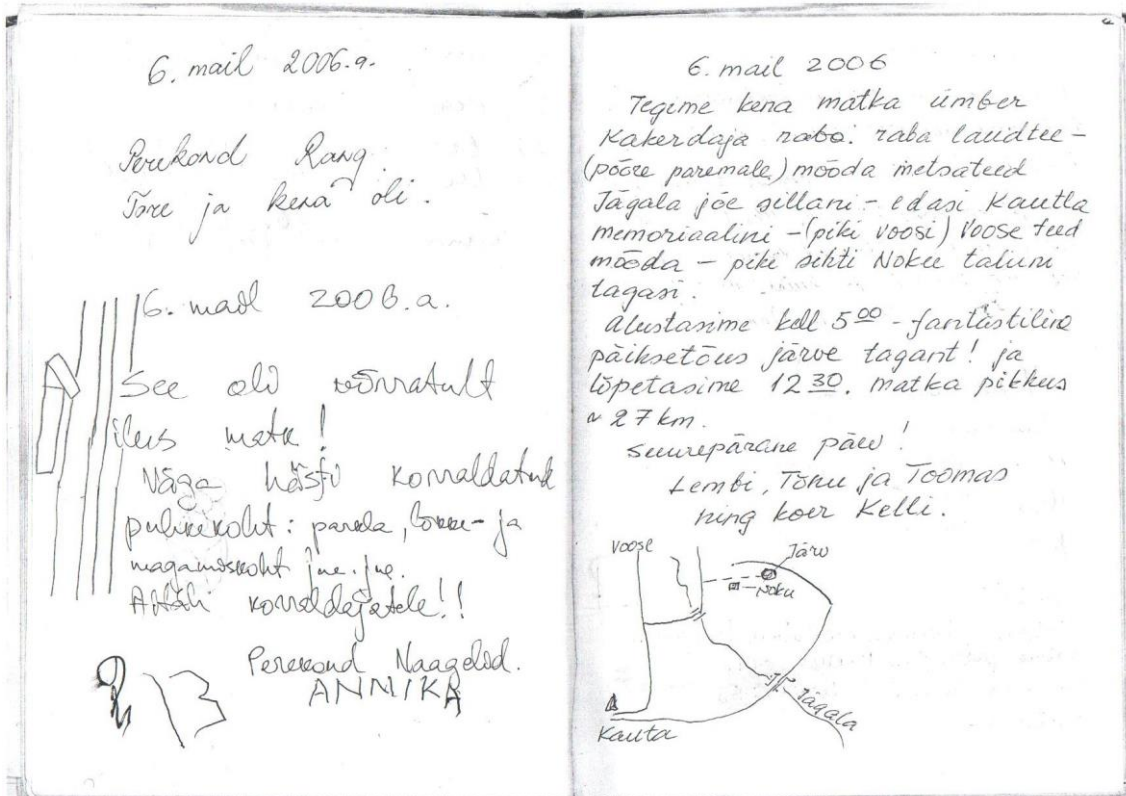 6. mail 2006.a.
Perekond Rang.
Tore ja kena oli.
6. mail 2006.a.
See oli võrratult
ilus matk!
Väga hästi korraldatud
puhkekoht: parda, lõkke- ja
magamiskoht jne. jne.
Aitäh korraldajatele!!
Perekond Naagelod.
ANNIKA
6. mail 2006
Tegime kena matka ümber
Kakerdaja raba. raba laudtee –
(pööre paremale) mööda metsateed
Jägala jõe sillani – edasi Kautla
memoriaalini – (piki Voosi) Voose teed
mööda – piki sihti Noku taluni
tagasi.
Alustasime kell 5 00 – fantastiline
päiksetõus järve tagant! ja
lõpetasime 12 30. matka pikkus
~ 27 km.
Suurepärane päev!
Lembi, Tõnu ja Toomas
ning koer Kelli.
Voose
Järv
Noku
Jägala
Kauta